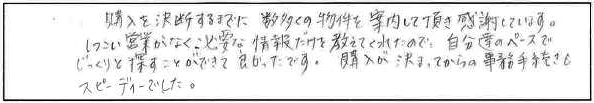 購入を決断するまでに 数多くの物件を案内して頂き感謝しています。
しつこい営業がなく、必要な情報だけを教えてくれたので、自分達のペースで
じっくりと探すことができて良かったです。購入が決まってからの事務手続きも
スピーディーでした。